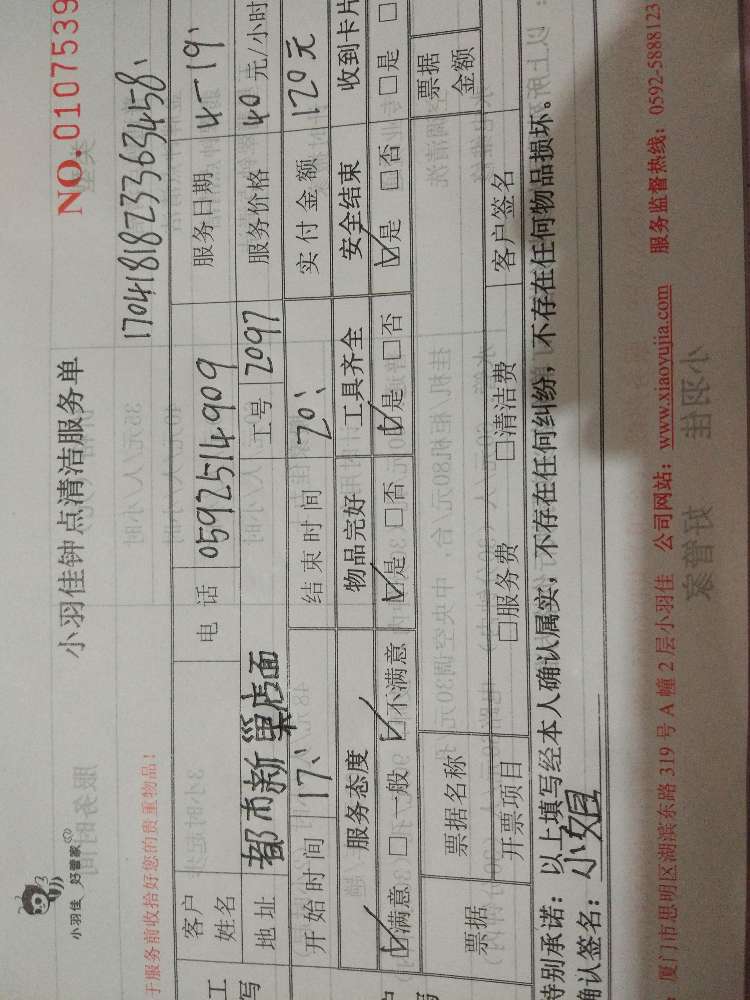 小羽佳 好管家
小羽佳钟点清洁服务单
NO.0107539
于服务前收拾好您的贵重物品!
17041818233634581
客户姓名 电话 0592514909 服务日期 4-19
地址 都市新巢店面 工号 2097 服务价格 40元/小时
开始时间 17: 结束时间 20: 实付金额 120元
服务态度 物品完好 工具齐全 安全结束 收到卡片
☑满意 □一般 ☑不满意 ☑是 □否 ☑是 □否 ☑是 □否 □是
票据 票据名称 票据金额
开票项目 □服务费 □清洁费 客户签名
特别承诺:以上填写经本人确认属实,不存在任何纠纷,不存在任何物品损坏。
确认签名:小姐
厦门市思明区湖滨东路 319 号 A 幢 2 层小羽佳 公司网站:www.xiaoyujia.com 服务监督热线:0592-5888123